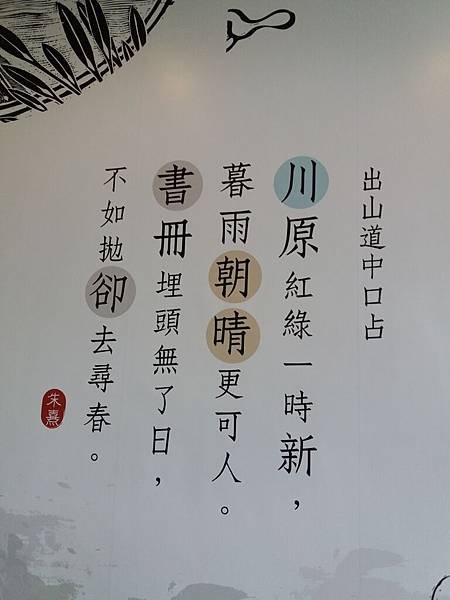 出山道中口占
川原紅綠一時新，
暮雨朝晴更可人。
書冊埋頭無了日，
不如拋卻去尋春。
朱熹